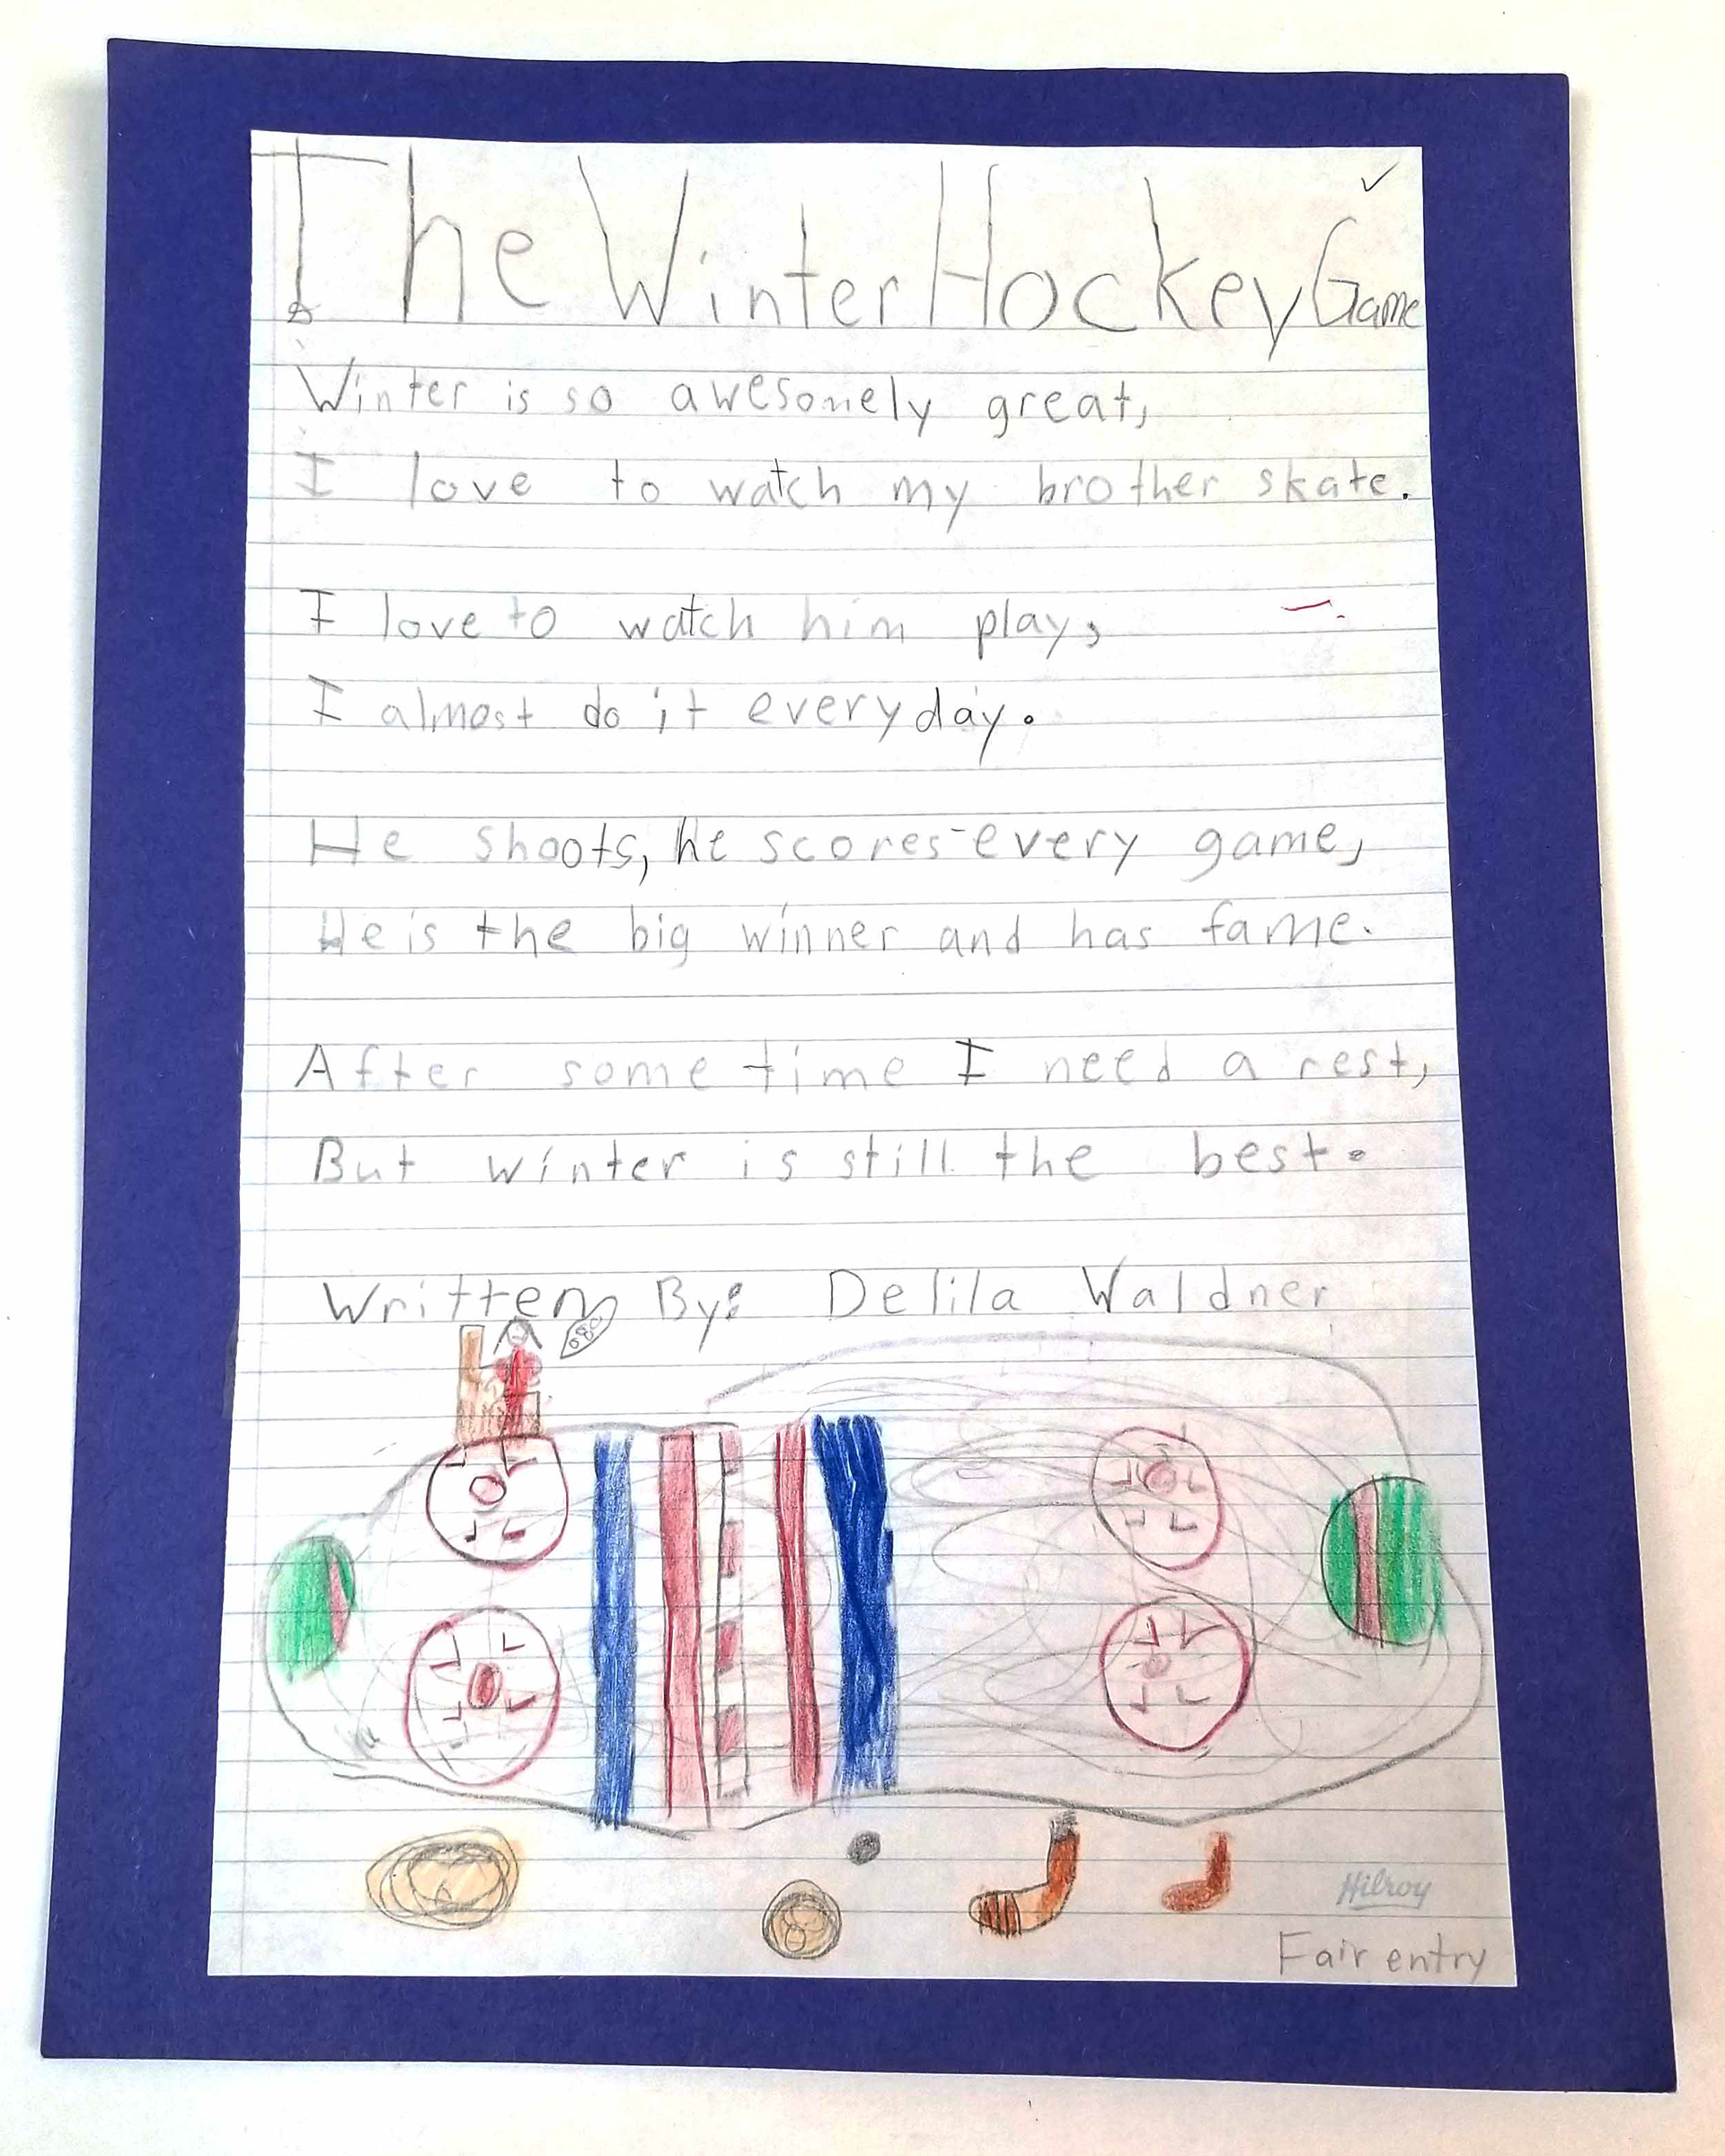 The Winter Hockey Game
Winter is so awesomely great,
I love to watch my brother skate.
I love to watch him play,
I almost do it everyday.
He shoots, he scores-every game,
He is the big winner and has fame.
After some time I need a rest,
But winter is still the best.
Written By: Delila Waldner
Hilroy
Fair entry